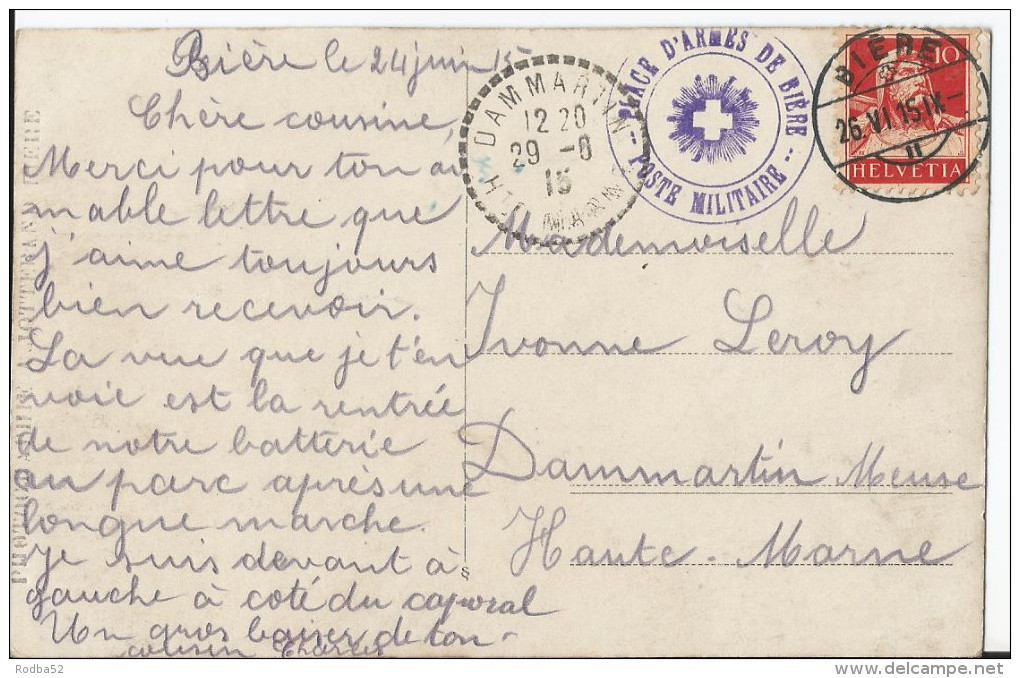 Bière le 24 juin 15
Chère cousine,
Merci pour ton ai
mable lettre que
j'aime toujours
bien recevoir.
La vue que je t'en
voie est la rentrée
de notre batterie
au parc après une
longue marche.
Je suis devant à
gauche à coté du caporal
Un gros baiser de ton
cousin Charles
DAMMARTIN
12 20
29 -6
15
HTE MARNE
PLACE D'ARMES DE BIÈRE
POSTE MILITAIRE
BIÈRE
26.VI.15.IX-
10
HELVETIA
Mademoiselle
Yvonne Leroy
Dammartin Meuse
Haute-Marne
PHOTOGRAPHIE A. JOTTERAND BIERE
Rodba52
www.delcampe.net